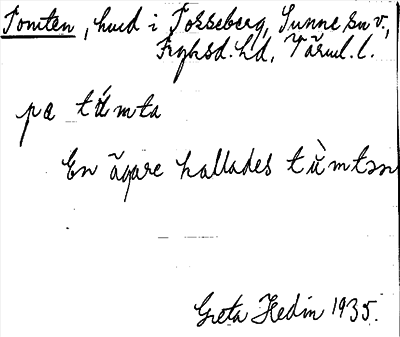 Tomten, hmd i Torseberg, Sunne sn v.,
Fryksd. hd, Värml. l.
pα tu̇̀mta
En ägare kallades tu̇̀mtən
Greta Hedin 1935.